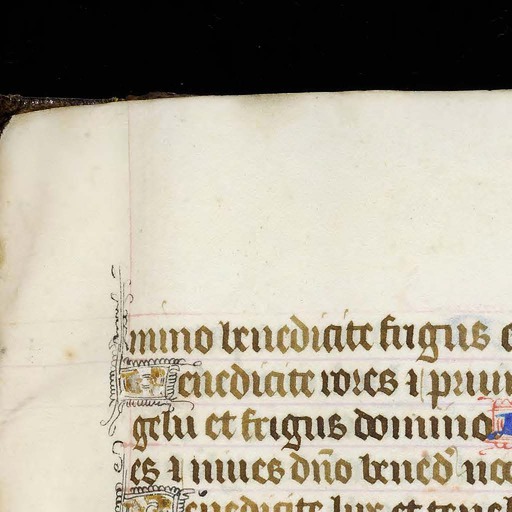 mino benedicite frigus
Benedicite rores ⁊ pruin
gelu et frigus domino
es ⁊ niues dño bened noc
Benedicite lux et teneb